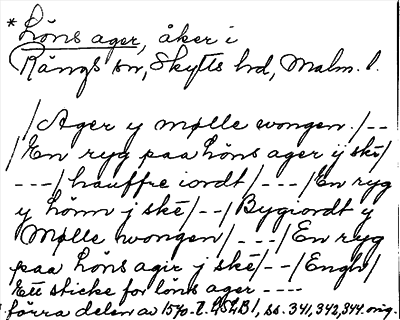 * Löns ager, åker i
Rängs sn, Skytts hrd, Malm. l.
/Ager y mølle wongen./--
/En ryg paa Löns ager j skē/
---/hauffre iordt/---/En ryg
y Lönn j skē/--/Bygiordt y
Mølle wongen/---/En ryg
paa Löns agir j skē/--/Engh/
Ett sticke for löns ager ----
förra delen av 1570. ss. 341, 342, 344. orig.